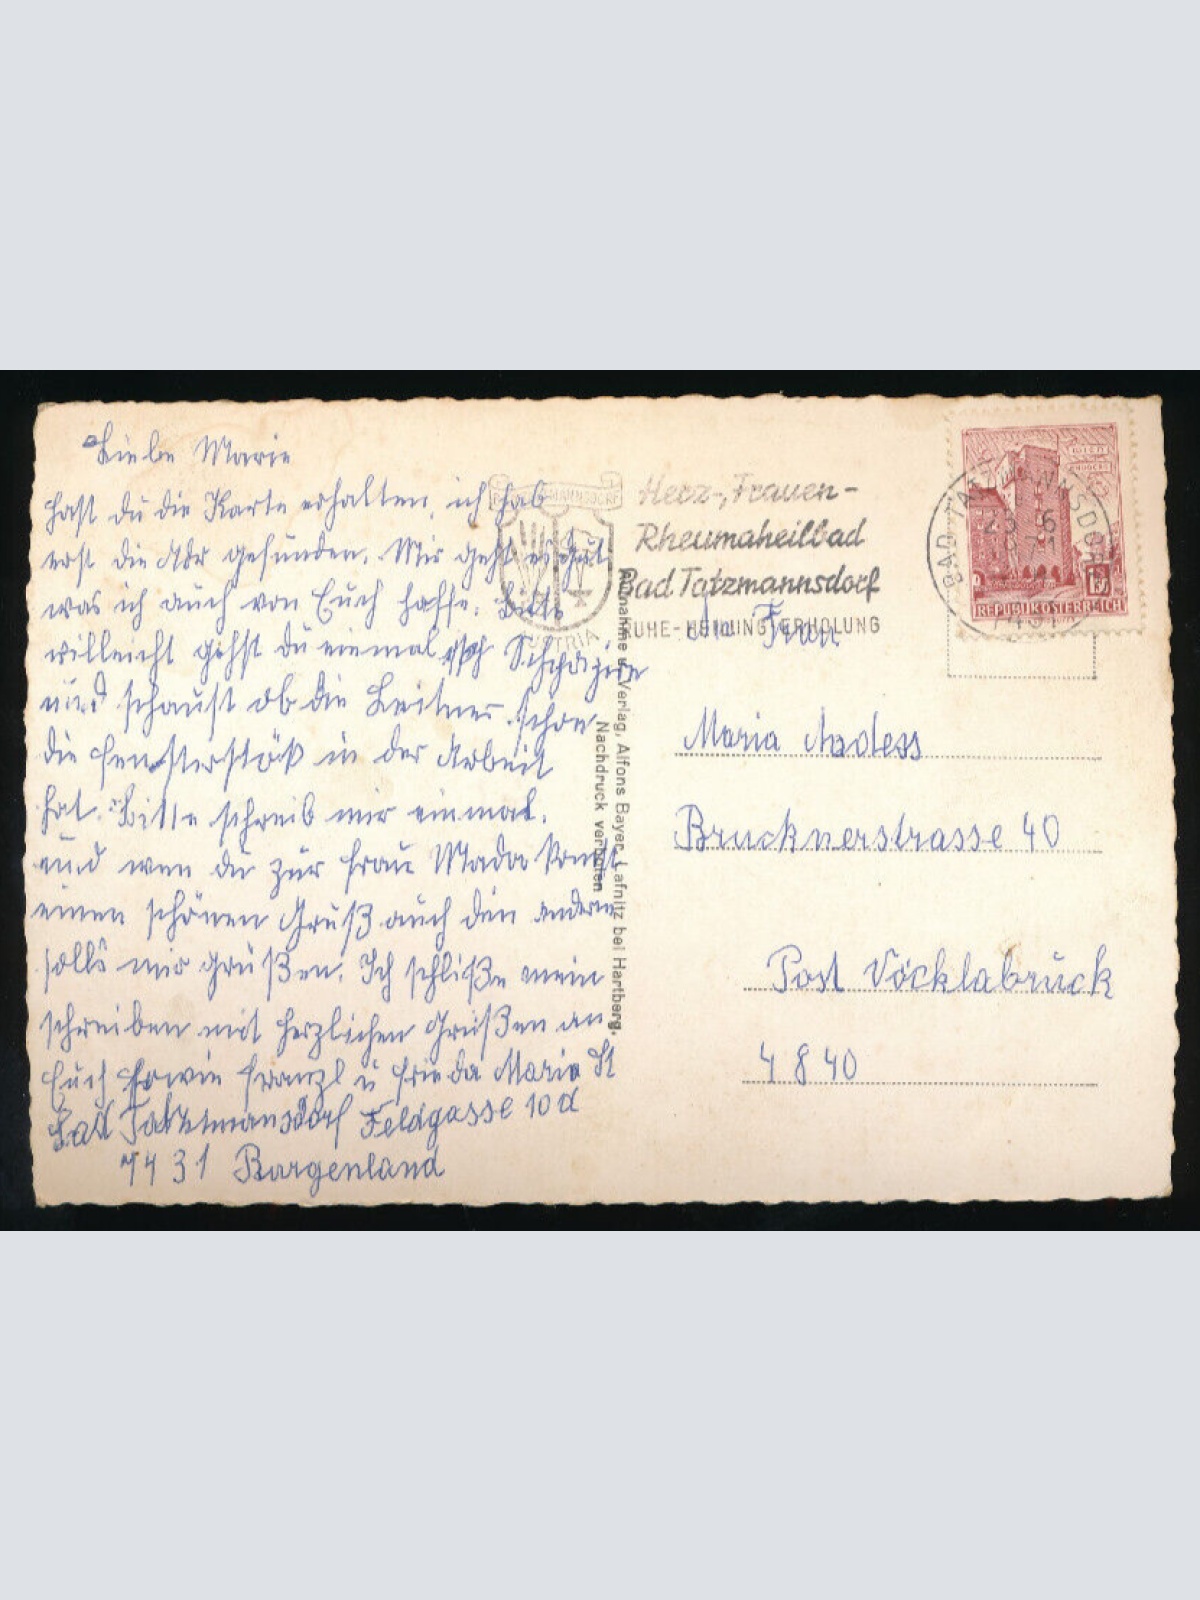 Liebe Marie
hast du die Karte erhalten, ich hab
erst die Adr gefunden. Mir geht es gut
was ich auch von Euch hoffe. Bitte
willeicht gehst du einmal
und schaust ob die Leitner schon
die Fensterstök in der Arbeit
hat. Bitte schreib mir einmal.
und wen du zur Frau Mader komst
einen schönen Gruß auch den andern
solls mir grüßen. Ich schliße mein
schreiben mit herzlichen Grüßen an
Euch sowie Franzl u Frieda Maria St
Bad Tatztmansdorf Feldgasse 10 d
7431 Burgenland
BAD TATZMANNSDORF
AUSTRIA
Herz-, Frauen-
Rheumaheilbad
Bad Tatzmannsdorf
RUHE-HEILUNG-ERHOLUNG
BAD TATZMANNSDORF
7431
REPUBLIK ÖSTERREICH
1.50
Aufnahme u. Verlag, Alfons Bayer, Lafnitz bei Hartberg,
Nachdruck verboten
An Frau
Maria
Brucknerstrasse 40
Post Vöcklabruck
4840